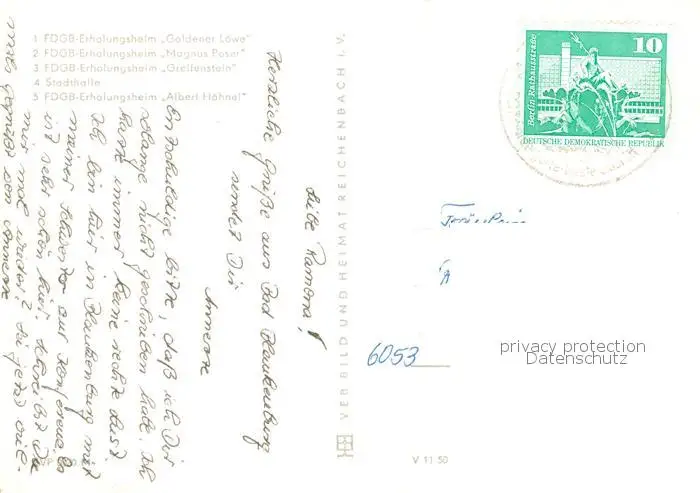 1 FDGB-Erholungsheim „Goldener Löwe"
2 FDGB-Erholungsheim „Magnus Poser"
3 FDGB-Erholungsheim „Greifenstein"
4 Stadthalle
5 FDGB-Erholungsheim „Albert Höhnel"
Liebe Ramona!
Herzliche Grüße aus Bad Blankenburg
sendet Dir
Annerose
Entschuldige bitte, daß ich Dir
solange nicht geschrieben habe. Ich
hatte immer keine rechte Lust
Ich bin hier in Blankenburg mit
meiner Schwester zur Konferenz. Es
ist sehr schön hier. Schreibst Du
mir mal wieder?
VEB BILD UND HEIMAT REICHENBACH I. V.
V 11 50
10
Berlin, Rathausstraße
DEUTSCHE DEMOKRATISCHE REPUBLIK
6053
privacy protection
Datenschutz